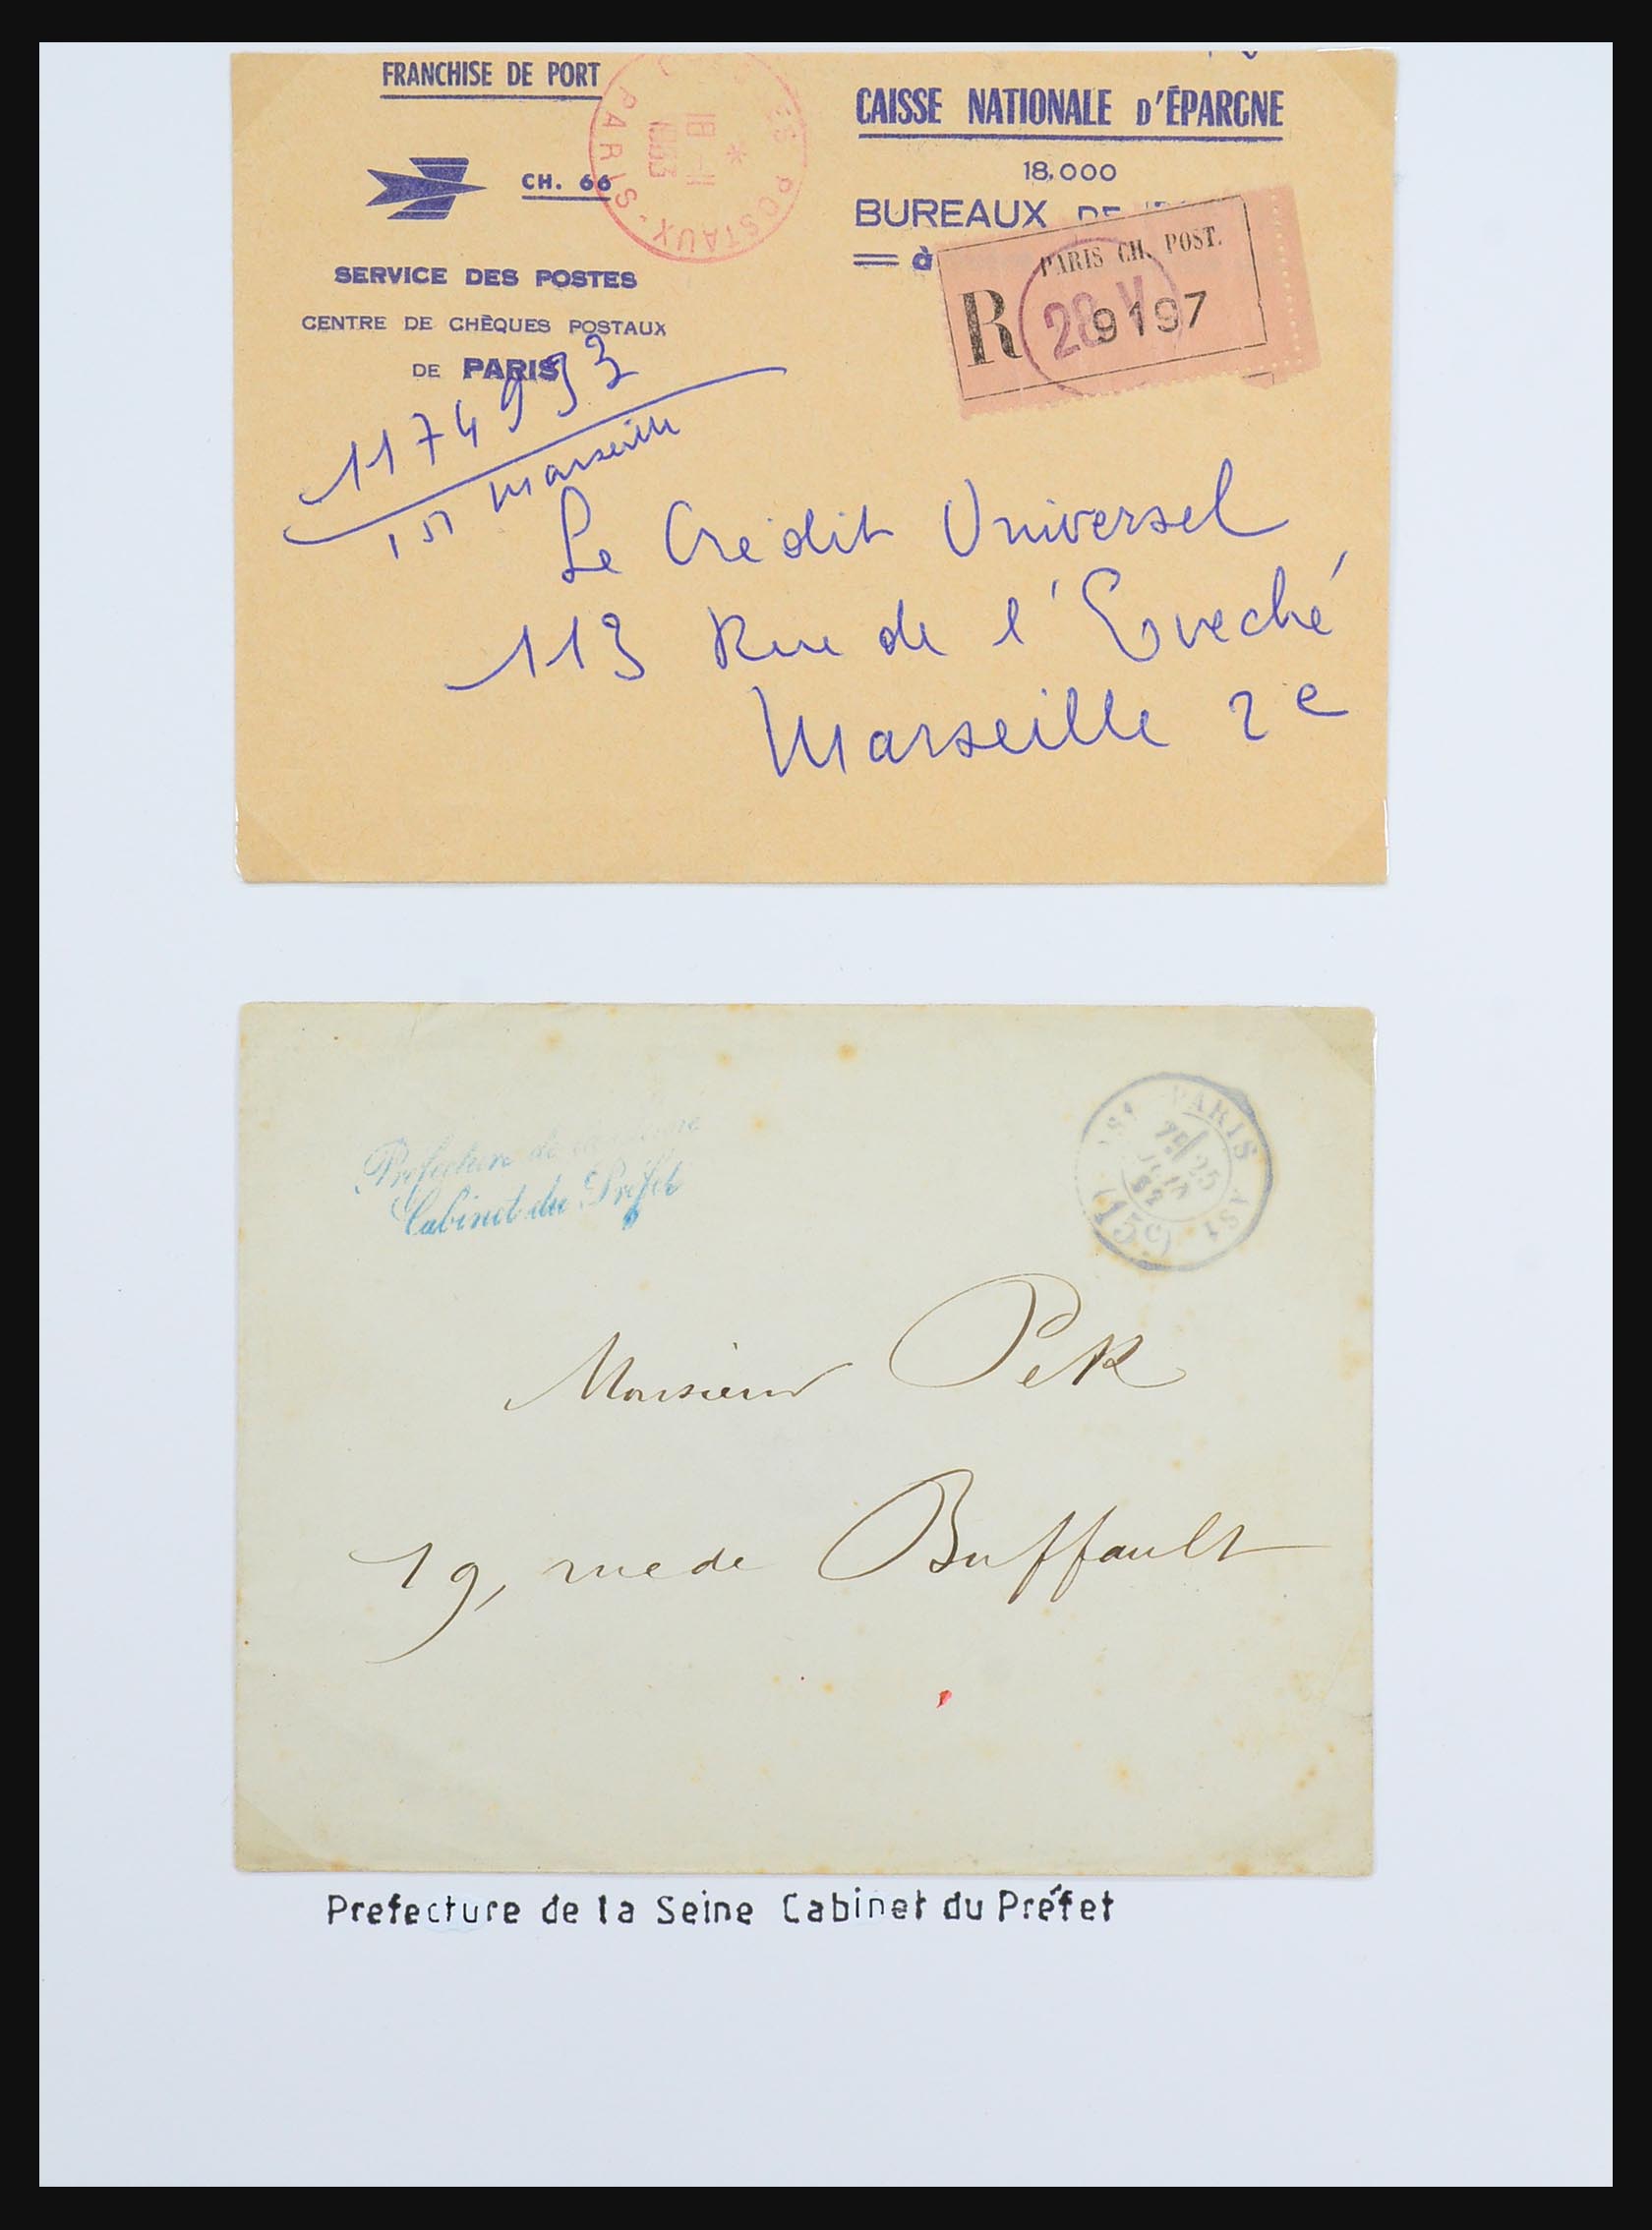 FRANCHISE DE PORT
CH. 66
SERVICE DES POSTES
CENTRE DE CHÈQUES POSTAUX
DE PARIS
POSTAUX. PARIS
18-11
1963
CAISSE NATIONALE D'ÉPARGNE
18.000
BUREAUX DE
= à
PARIS CH. POST.
R 9197
1174933
151 Marseille
Le Crédit Universel
113 Rue de l'Eveché
Marseille 2e
Prefecture de la Seine
Cabinet du Préfet
PARIS
25
(15e)
Monsieur Pek
19, rue de Buffault
Prefecture de la Seine Cabinet du Préfet